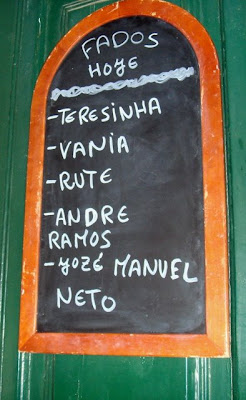 FADOS
HOJE
-TERESINHA
-VANIA
-RUTE
-ANDRE
RAMOS
-YOZÉ MANUEL
NETO